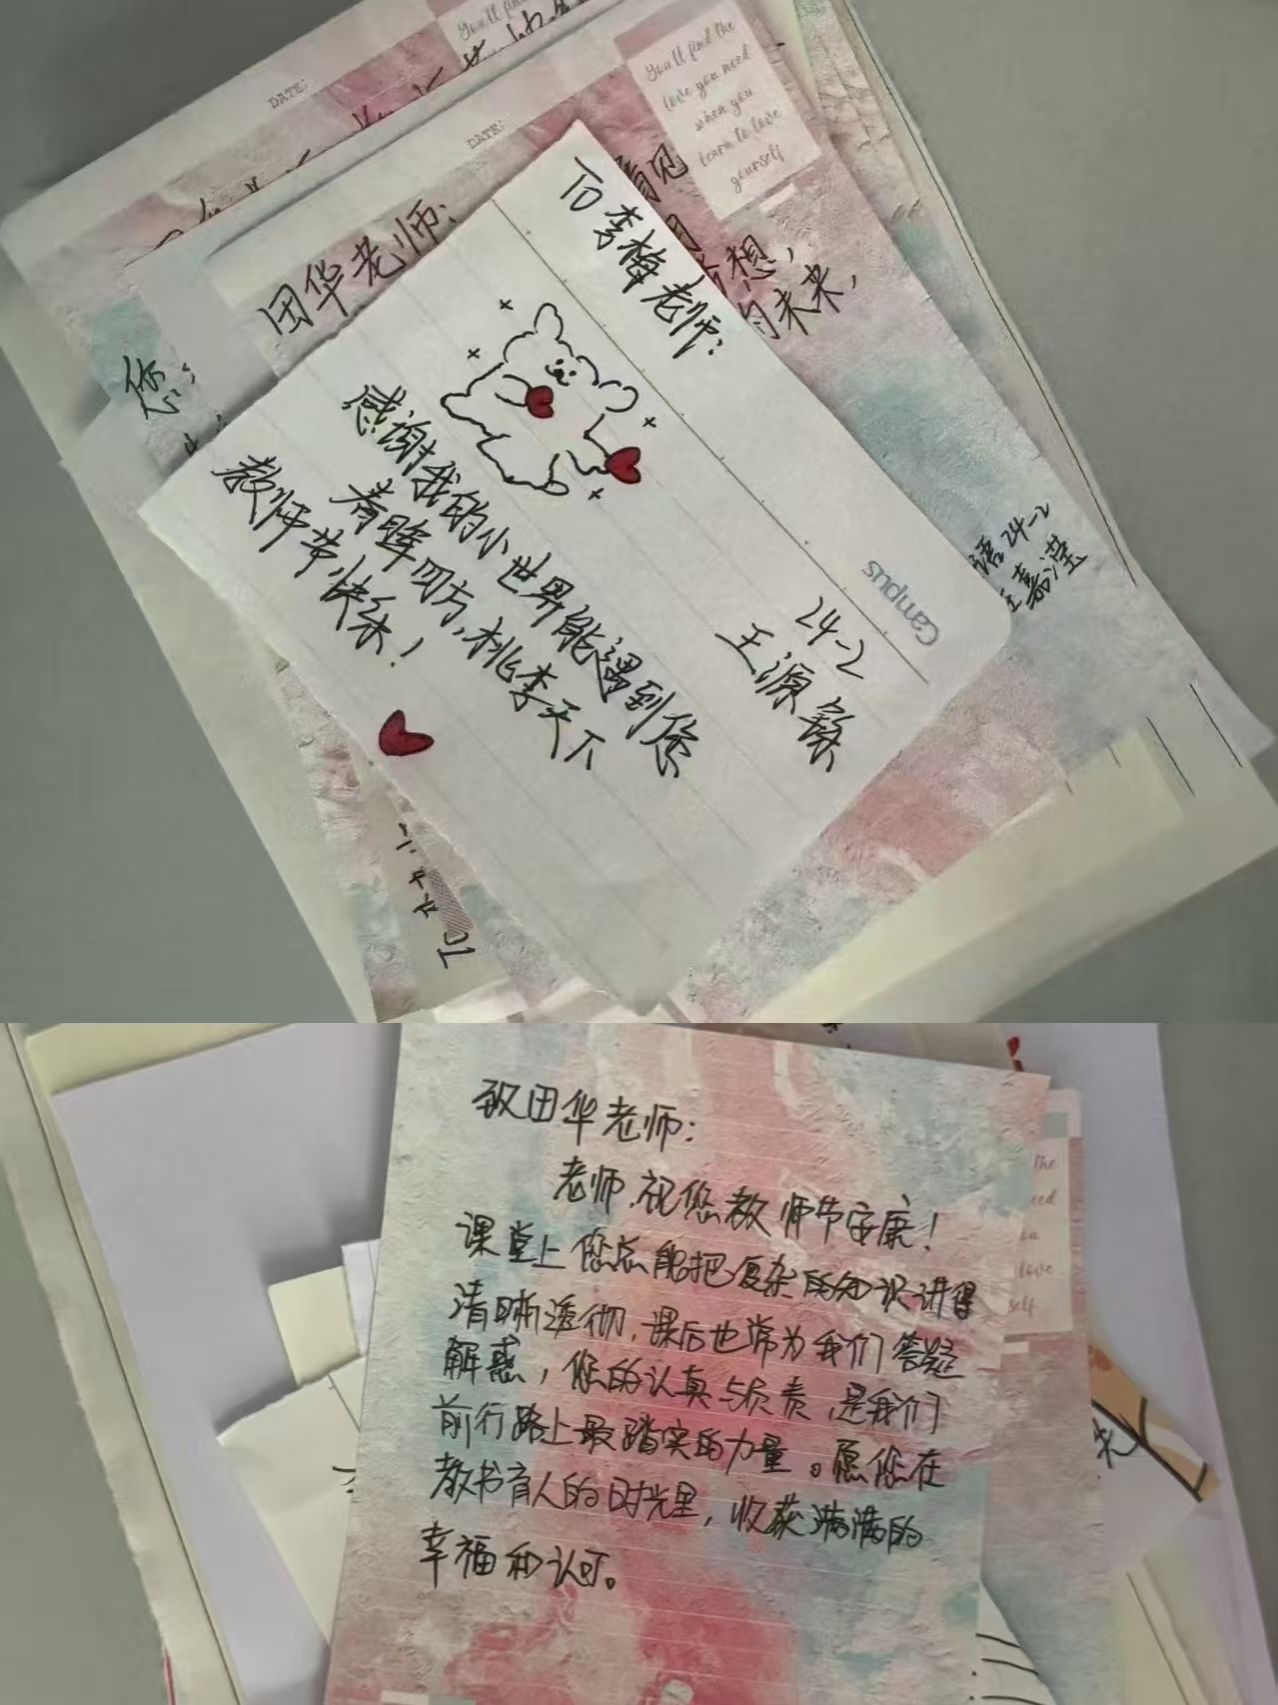 DATE:
DATE:
You'll find the
love you need
when you
learn to love
yourself
田华老师:
您
想，
未来，
语24-2
嘉滢
TO 李梅老师:
感谢我的小世界能遇到您
春晖四方,桃李天下
教师节快乐!
24-2
王源
Campus
致田华老师:
老师,祝您教师节安康!
课堂上您总能把复杂的知识讲得
清晰透彻,课后也常为我们答疑
解惑,您的认真与负责,是我们
前行路上最踏实的力量。愿您在
教书育人的时光里,收获满满的
幸福和认可。
the
love